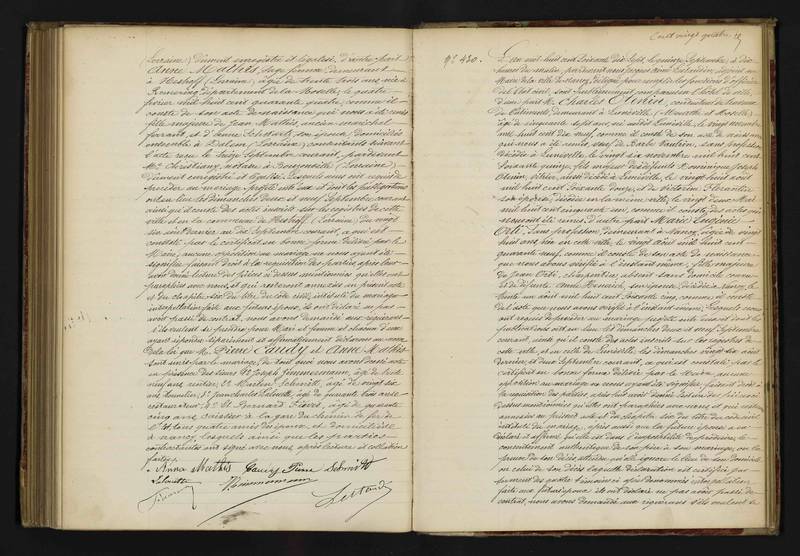 Lorraine) dûment enregistré et légalisé, d'autre part
Anne Mathis, sage femme, demeurant
à (Lorraine), âgée de trente trois ans, née à
Remering, département de la Moselle, le quatre
février mil huit cent quarante quatre, comme il
conste de son acte de naissance
fille majeure de Jean Mathis, ancien maréchal
ferrant, et d'Anne son épouse, domiciliés
ensemble à (Lorraine), consentants suivant
acte reçu le sept Septembre courant, par devant
Me Christiany, notaire à Bouzonville (Lorraine)
dûment enregistré et légalisé. Lesquels nous ont requis de
procéder au mariage projeté entre eux et dont les publications
ont eu lieu les dimanches deux et neuf Septembre courant
ainsi qu'il conste des actes insérés sur les registres de cette
ville et en la commune de (Lorraine) du vingt
six août dernier au dix Septembre courant, ce qui est
constaté par le certificat en bonne forme délivré par le
Maire, aucune opposition au mariage ne nous ayant été
signifiée, faisant droit à la réquisition des parties, après leur
avoir donné lecture des pièces ci dessus mentionnées qu'elles ont
paraphées avec nous, et qui resteront annexées au présent acte
et du chapitre six du titre du code civil, intitulé du mariage
interpellation faite aux futurs époux, ils ont déclaré ne pas
avoir passé de contrat, nous avons demandé aux requérants
s'ils veulent se prendre pour Mari et femme et chacun d'eux
ayant répondu séparément et affirmativement déclarons au nom
de la loi que M. Pierre Gaudy et Anne Mathis
sont unis par le mariage, de tout quoi nous avons dressé acte
en présence des sieurs 1° Joseph Zimmermann, âgé de trente
neuf ans, rentier, 2° Schmitt, âgé de vingt six
ans, 3° Jean Charles Lalouette, âgé de quarante trois ans
restaurateur, 4° Bernard Pierre, âgé de quarante
cinq ans, caissier à la gare du chemin de fer de
l'Est, tous quatre amis des époux et domiciliés
à Nancy, lesquels ainsi que les parties
contractantes ont signé avec nous, après lecture et collation
faites.
Anna Mathis Gaudy Pierre Schmitt
Lalouette Zimmermann
Cent vingt quatre
N° 430.
L'an mil huit cent soixante dix sept, le quinze Septembre, à dix
heures du matin, par devant nous
Maire de la ville de Nancy, délégué pour remplir les fonctions d'officier
de l'État civil, sont publiquement comparus en l'hôtel de ville,
d'une part M. Charles conducteur de travaux
de bâtiments, demeurant à Lunéville (Meurthe et Moselle)
âgé de cinquante huit ans, né audit Lunéville, le vingt
mil huit cent dix neuf, comme il conste de son acte de naissance
qui nous a été remis, veuf de Barbe sans profession
décédée à Lunéville le vingt six novembre mil huit cent
soixante quinze, fils majeur des défunts Dominique Joseph
vitrier, aussi décédé à Lunéville, le vingt huit août
mil huit cent soixante douze, et de Victoire Florentin
son épouse, décédée en la même ville, le vingt deux Mai
mil huit cent cinquante un, comme il conste des actes qui
nous ont été remis, d'autre part Marie Eugénie
Orti, sans profession, demeurant à Nancy, âgée de vingt
huit ans, née en cette ville, le vingt août mil huit cent
quarante neuf, comme il conste de son acte de naissance
que nous avons vérifié à l'instant même, fille majeure
de Jean Orti, charpentier, absent sans domicile connu
et de défunte Anne son épouse, décédée à Nancy, le
trente un août mil huit cent soixante cinq, comme il conste
de l'acte que nous avons vérifié à l'instant même, Lesquels nous
ont requis de procéder au mariage projeté entre eux et dont les
publications ont eu lieu les dimanches deux et neuf Septembre
courant, ainsi qu'il conste des actes insérés sur les registres de
cette ville, et en celle de Lunéville les dimanches vingt six août
dernier et deux Septembre courant, ce qui est constaté par le
certificat en bonne forme délivré par le Maire, aucune
opposition au mariage ne nous ayant été signifiée, faisant droit à
la réquisition des parties, après leur avoir donné lecture des pièces ci
dessus mentionnées qu'elles ont paraphées avec nous et qui resteront
annexées au présent acte et du chapitre six du titre du code civil
intitulé du mariage, après que la future épouse a
déclaré et affirmé qu'elle est dans l'impossibilité de produire le
consentement authentique de son père à son mariage, ou la
preuve de son décès attendu qu'elle ignore le lieu de son domicile
ou celui de son décès laquelle déclaration est certifiée par
serment des quatre témoins ci après dénommés, interpellation
faite aux futurs époux ils ont déclaré ne pas avoir passé de
contrat, nous avons demandé aux requérants s'ils veulent se